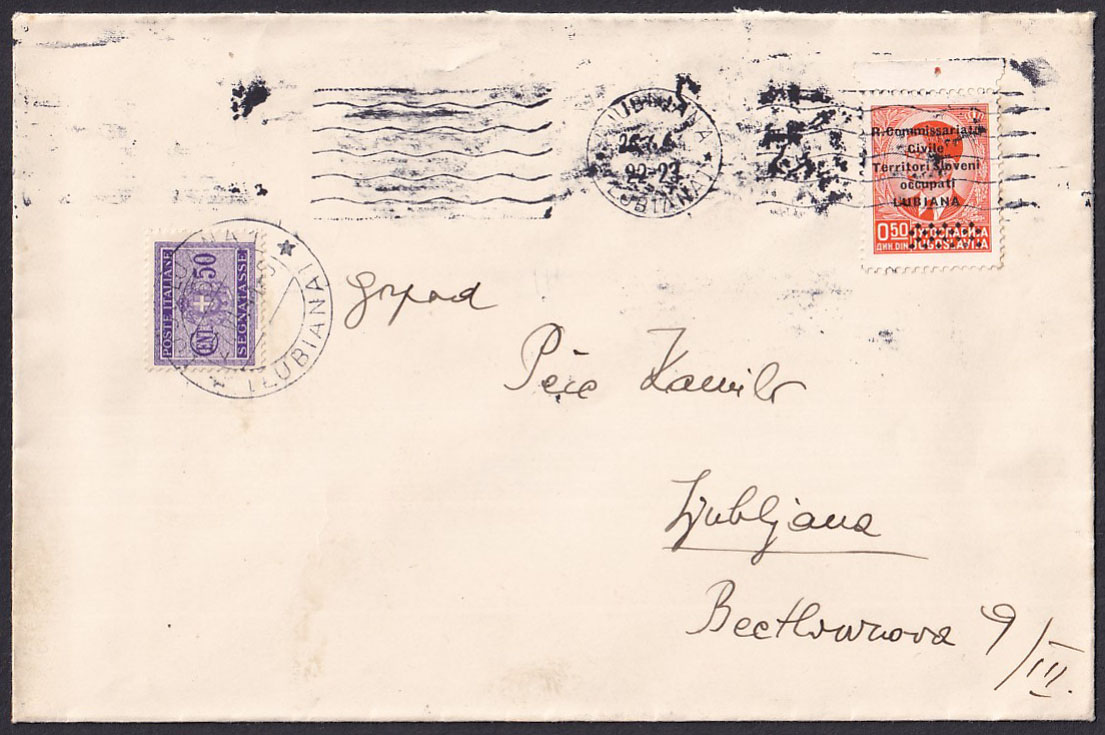 LUBIANA
22-23
R. Commissariato
Civile
Territori Sloveni
occupati
LUBIANA
0.50
ДИН DIN
ЈУГОСЛАВИЈА
JUGOSLAVIJA
POSTE ITALIANE
CENT 50
SEGNATASSE
(LUBIANA)
Gospod
Peče Kamilo
Ljubljana
Beethovnova 9/III.